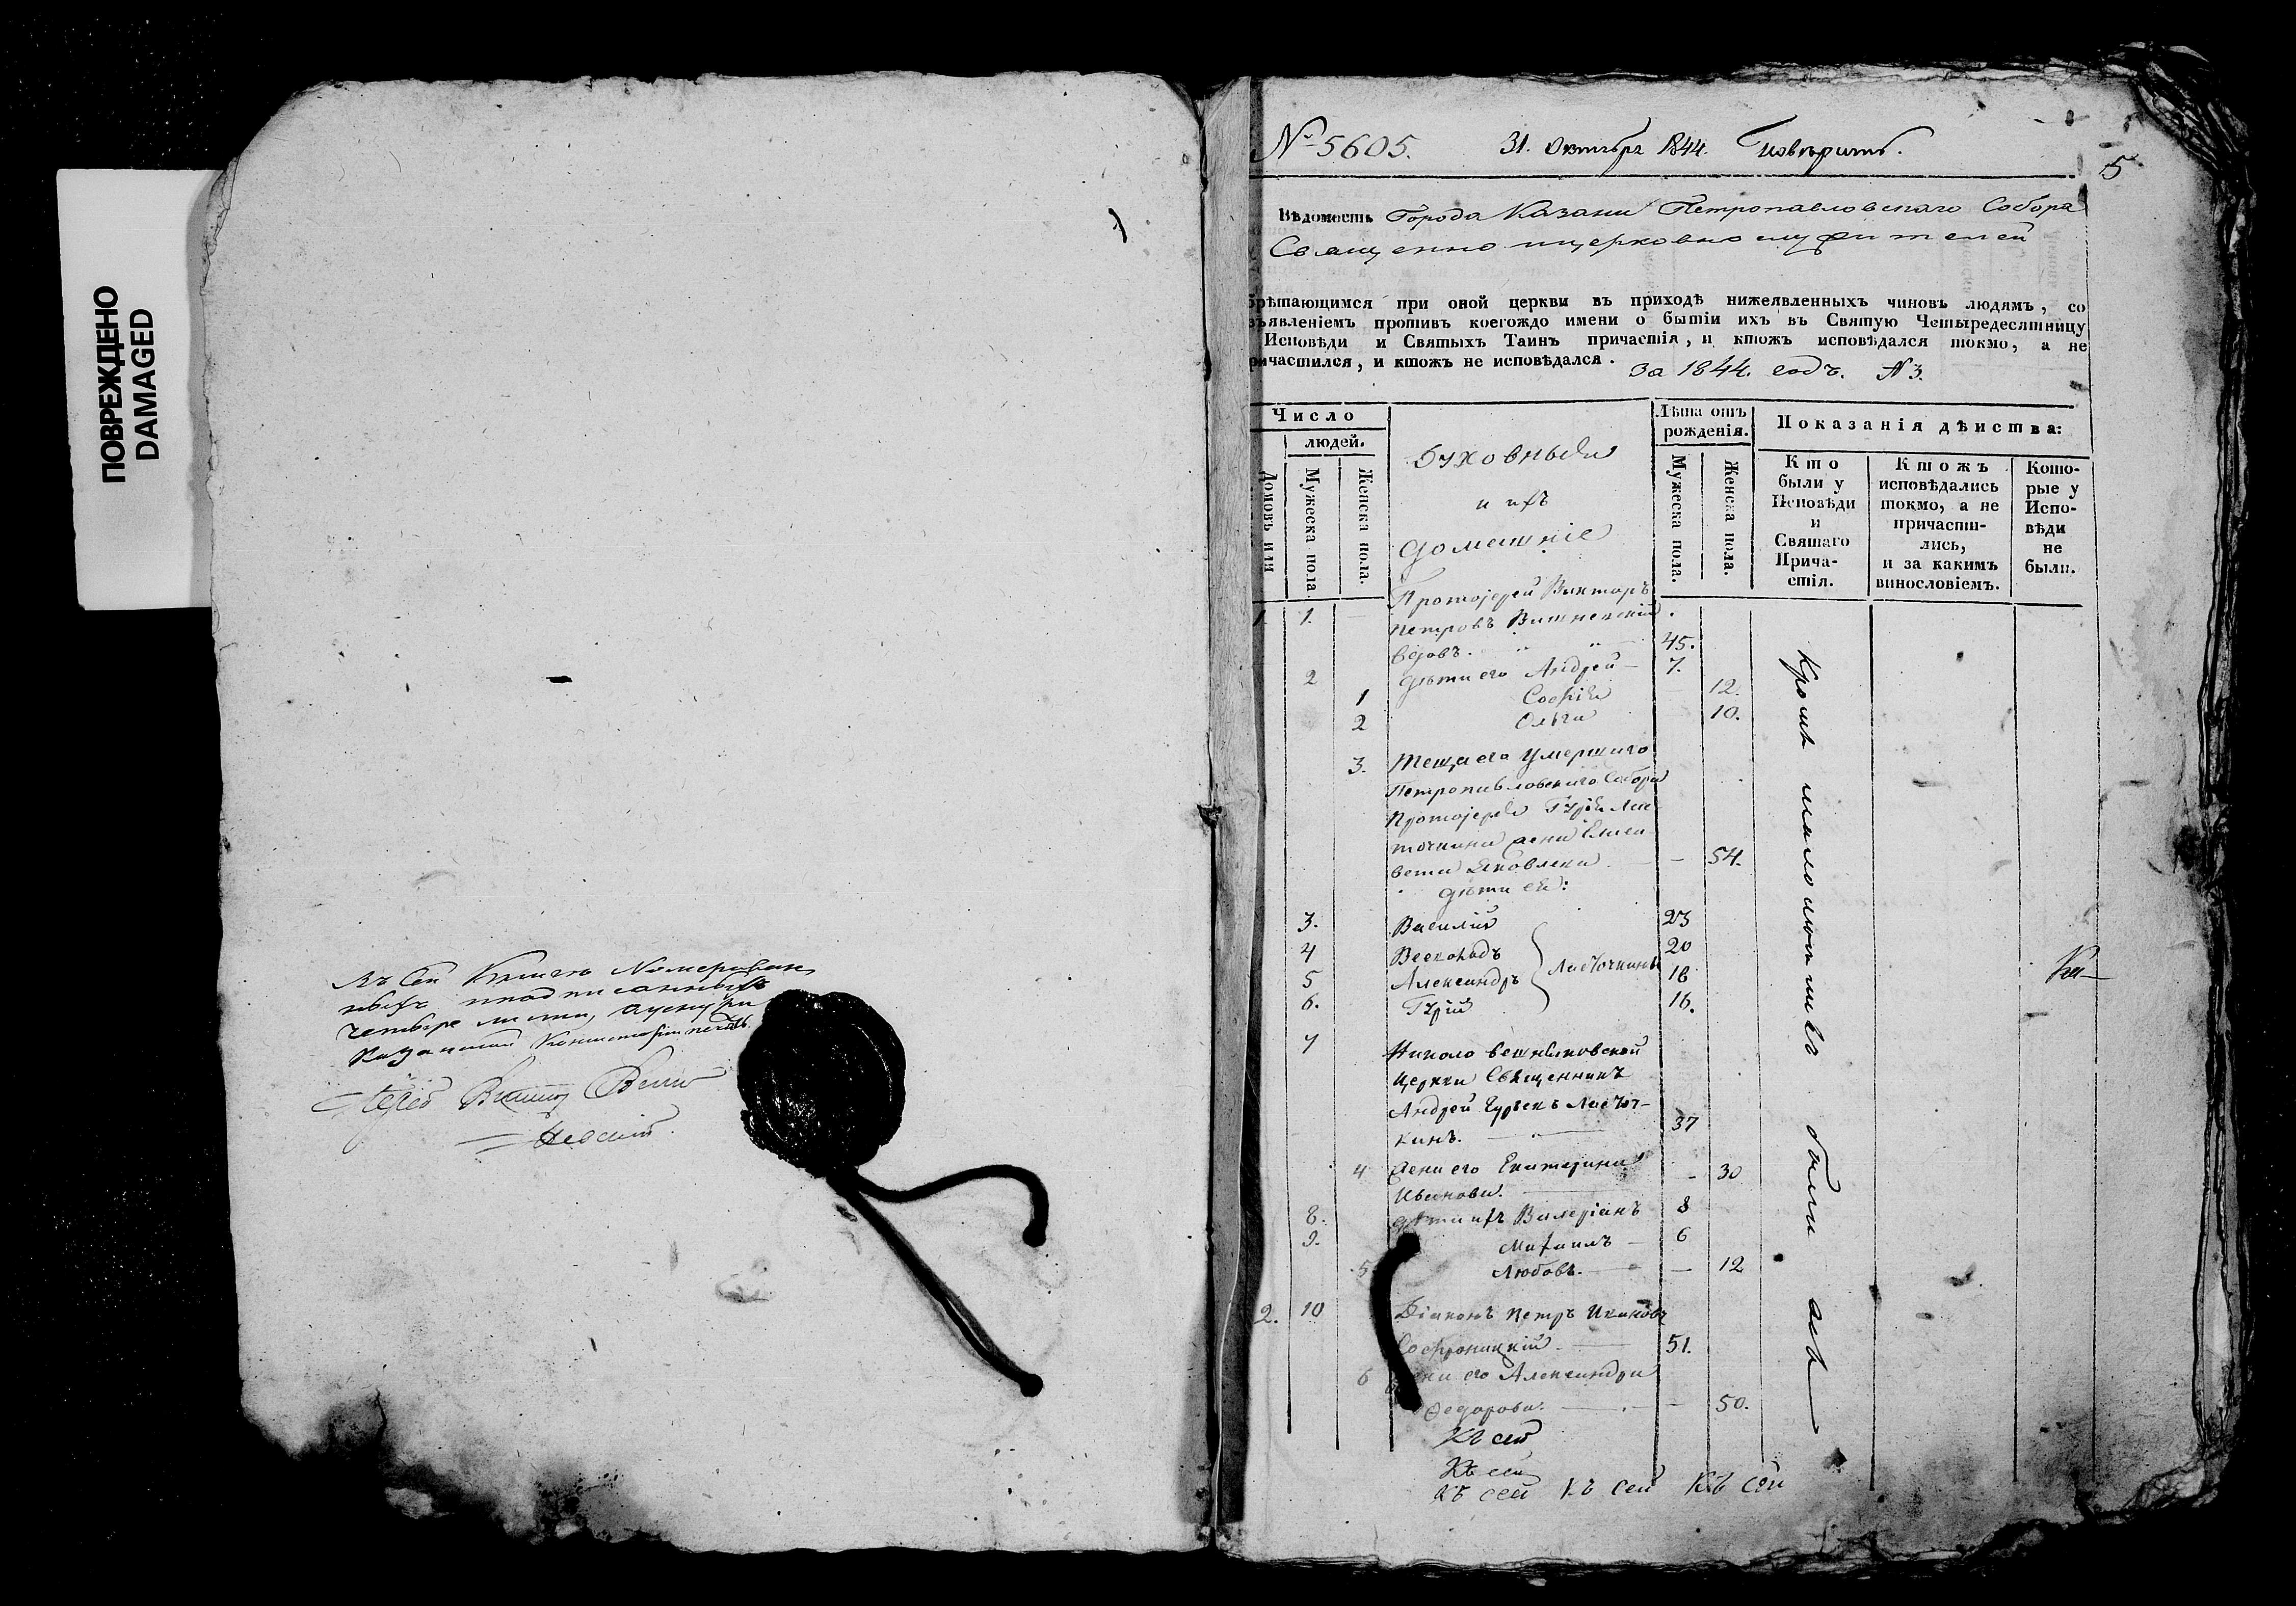 ПОВРЕЖДЕНО
DAMAGED
Въ сей Книгѣ Номерован
ныхъ
четыре листа,
Казанской Консисторіи печать.
№ 5605. 31. Октября 1844. Повѣрить.
5
Вѣдомость Города Казани Петропавловскаго Собора
Священно и церковно служителей
брѣтающимся при оной церкви въ приходѣ нижеявленныхъ чиновъ людямъ, со
зъявленіемъ противъ коегождо имени о бытіи ихъ въ Святую Четыредесятницу
Исповѣди и Святыхъ Таинъ причастія, и ктожъ исповѣдался токмо, а не
ричастился, и ктожъ не исповѣдался.
За 1844. годъ. № 3.
Число
людей.
Домовъ или
Мужеска пола
Женска пола.
Духовныя
и ихъ
домашніе
Лѣта отъ
рожденія.
Мужеска пола.
Женска пола.
Показанія дѣйства:
Кто
были у
Исповѣди
и
Святаго
Прича-
стія.
Ктожъ
исповѣдались
токмо, а не
причасти-
лись,
и за какимъ
винословіемъ.
Кото-
рые у
Испо-
вѣди
не
были.
Протоіерей Викторъ
1. 1. Петровъ Вишневскій
вдовъ. 45.
2 дѣти его Андрей 7.
1 Софія 12.
2 Ольга 10.
3. Теща его умершаго
Петропавловскаго Собора
Протоіерея Гурія Лас
точкина жена Елиса
вета Яковлева 54.
дѣти ея:
3. Василій 23
4 Всеволодъ 20
Ласточкины
5 Александръ 18
6. Гурій 16.
7 Николо Вешняковской
Церкви Священникъ
Андрей Гурьевъ Ласточ-
кинъ. 37
4 жена его Екатерина 30
Иванова.
8. дѣти ихъ Валеріанъ 8
9. Михаилъ 6
5 Любовь. 12
2. 10 Діаконъ Петръ Ивановъ
Софроницкій 51.
6 жена его Александра
Федорова. 50.
Кромѣ малолѣтнихъ были всѣ
Къ сей
Къ сей
Къ сей Къ сей Къ сей